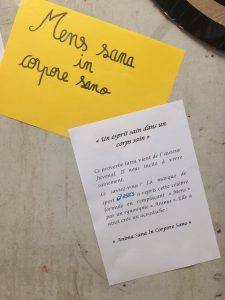 Mens sana
in
corpore sano
« Un esprit sain dans un
corps sain »
Ce proverbe latin vient de l' auteur
Juvénal. Il nous incite à vivre
sainement.
Le saviez-vous ? La marque de
sport asics a repris cette célèbre
formule en remplaçant « Mens »
par un synonyme « Animus ». Elle a
ainsi créé un acrostiche :
« Anima Sana In Corpore Sano »